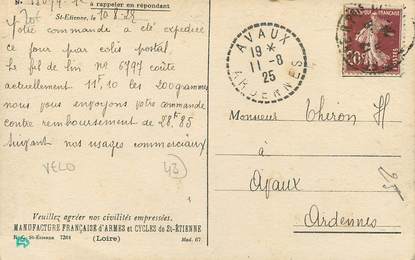 à rappeler en répondant
St-Etienne, le 10.8.25
Votre commande a été expédiée
ce jour par colis postal.
Le fil de lin n° 6797 coûte
actuellement 11f,10 les 200 grammes
nous vous envoyons votre commande
contre remboursement de 28f.85
Suivant nos usages commerciaux
VELO
43
Veuillez agréer nos civilités empressées.
MANUFACTURE FRANÇAISE D'ARMES et CYCLES de St-ÉTIENNE
St-Etienne 7264 (Loire) Mod. 67
AVAUX
19 *
11-8
25
ARDENNES
FRANÇAISE
POSTES
Monsieur Thiron H
à
Avaux
Ardennes